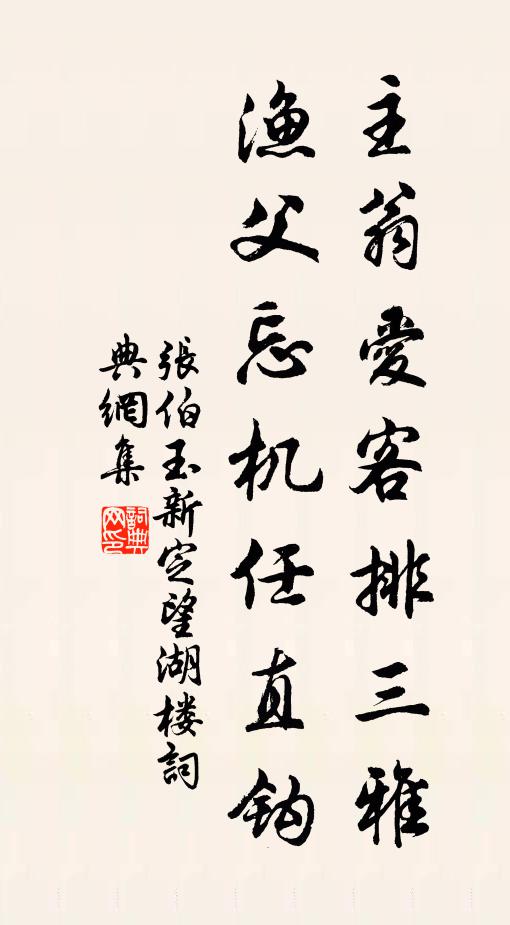 主翁愛客排三雅
渔父忘机任直鈎
張伯玉新定望湖楼詞
典網集
詞典网印